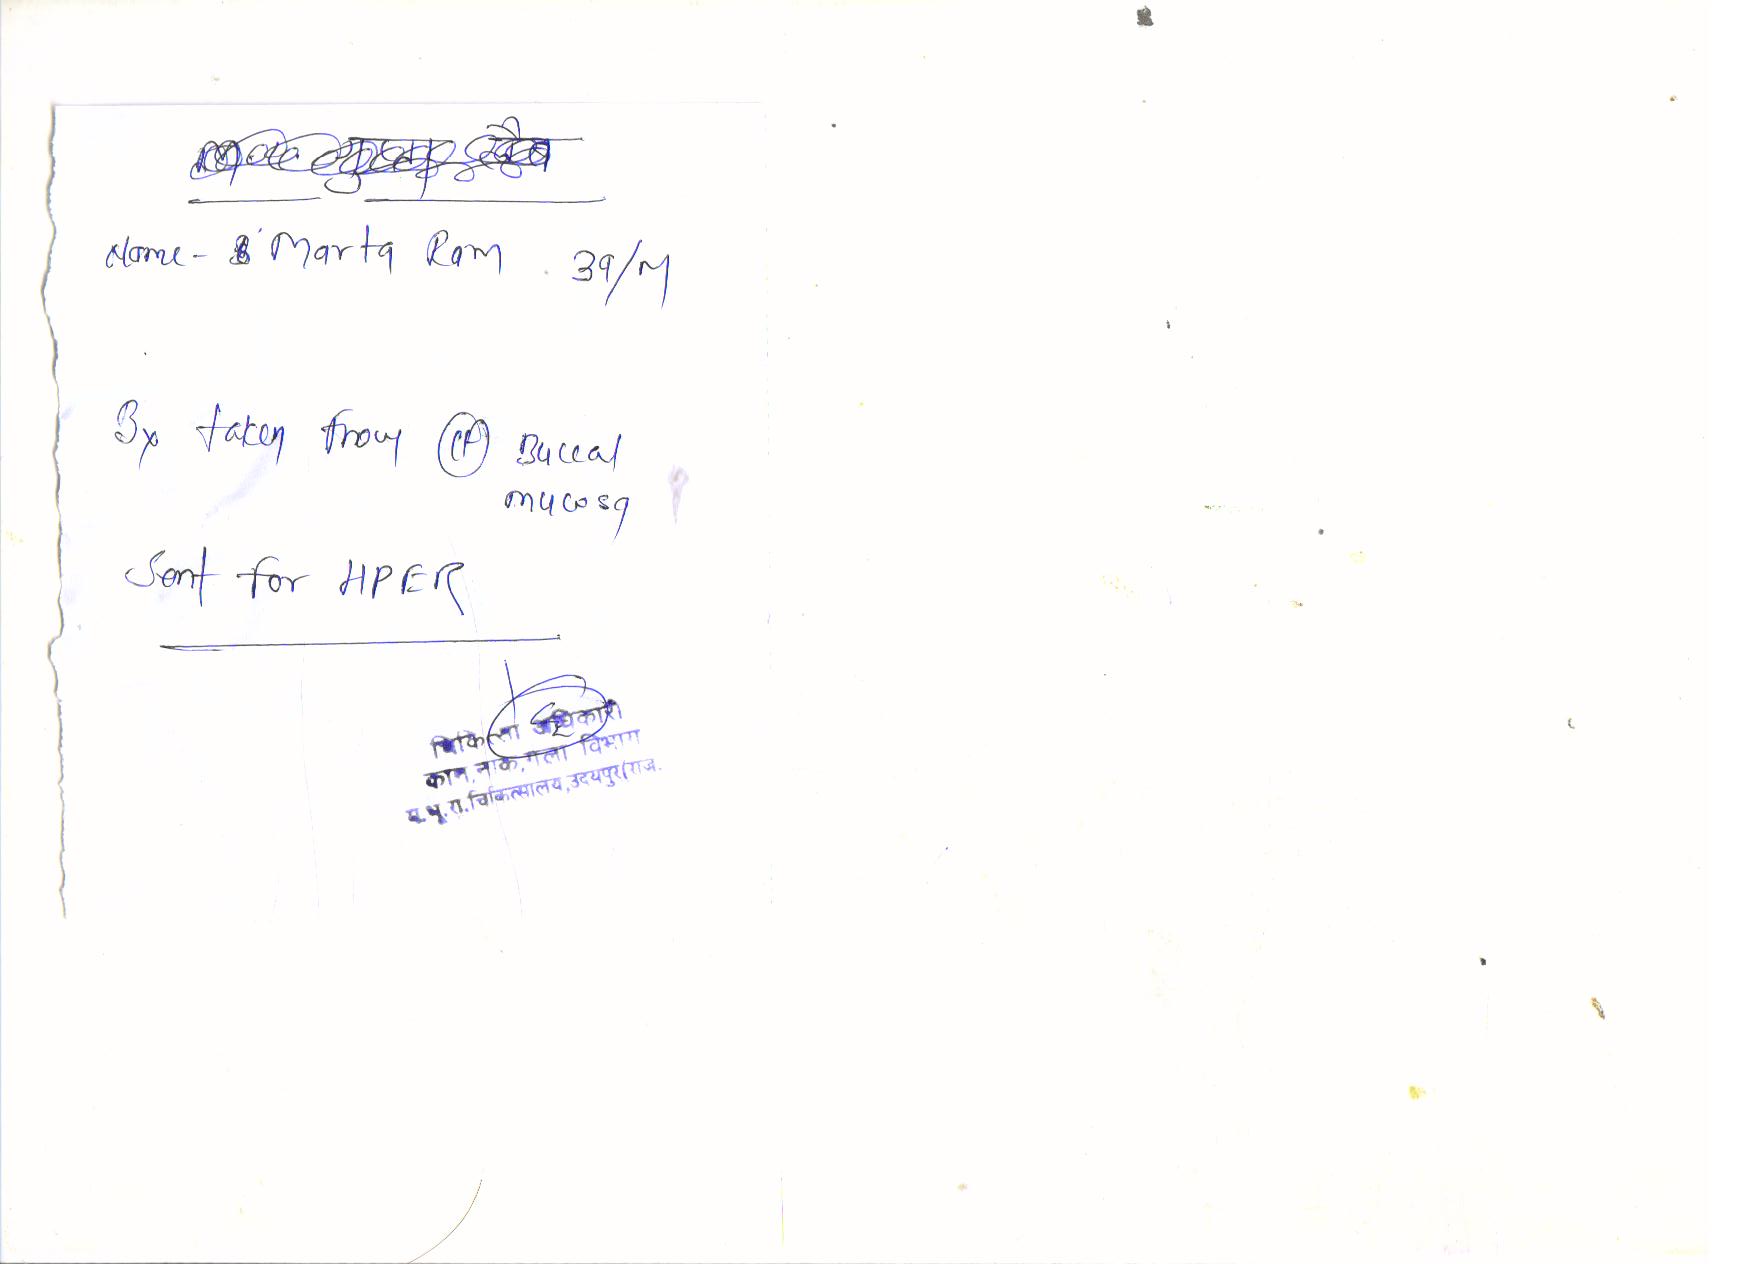 Name - Marta Ram 39/M
Bx taken from Buccal
mucosa
Sent for HPER
चिकित्सा अधिकारी
कान, नाक, गला विभाग
म.भू.रा.चिकित्सालय, उदयपुर (राज.